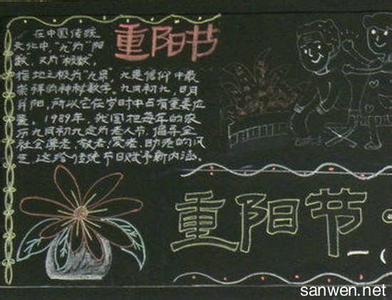 重阳节
在中国传统
文化中，"九"为"阳
数，又为"极数，
指地之极为"九泉"，九是信仰中最
崇拜的神秘数字，九月初九，日月
并阳，所以它在岁时中占有重要位
置。1989年，我国把每年的农
历九月初九定为老人节，倡导全
社会尊老、敬老、爱老、助老的风
气，这给传统节日赋予新内涵。
重阳节
sanwen.net